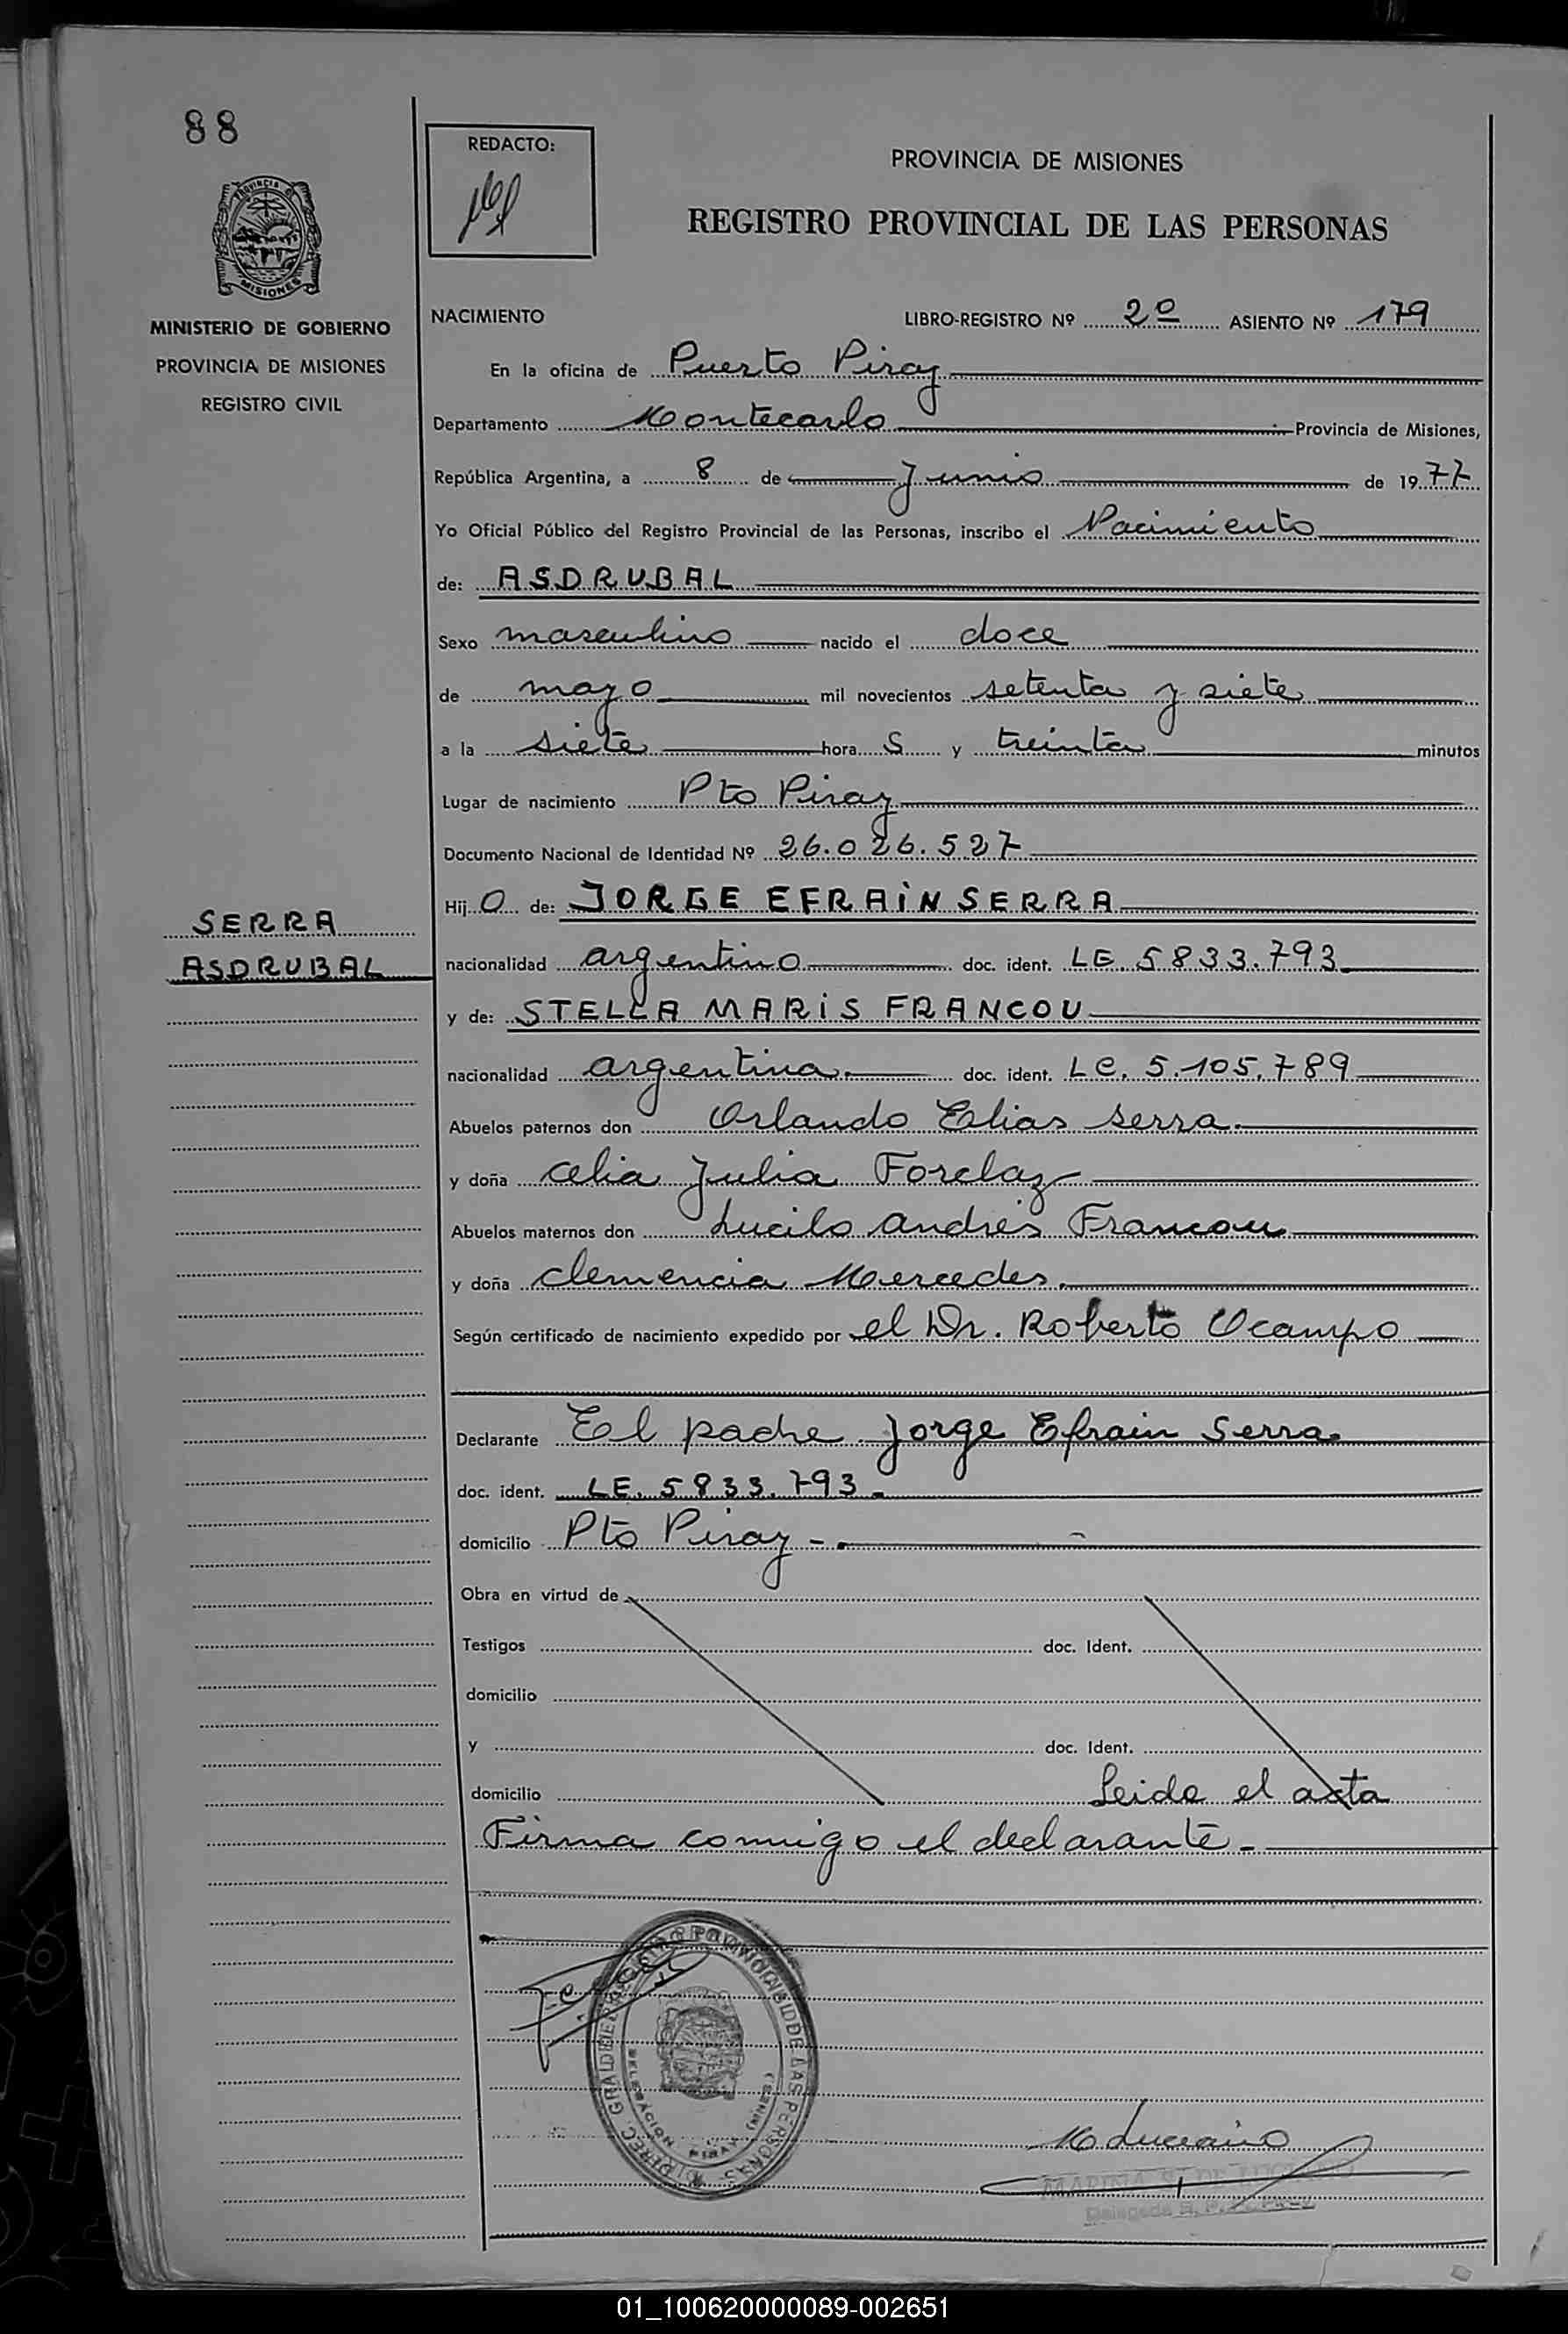 88
REDACTO:
PROVINCIA DE MISIONES
REGISTRO PROVINCIAL DE LAS PERSONAS
MISIONES
MINISTERIO DE GOBIERNO
PROVINCIA DE MISIONES
REGISTRO CIVIL
NACIMIENTO LIBRO-REGISTRO Nº 2º ASIENTO Nº 179
En la oficina de Puerto Piray
Departamento Montecarlo Provincia de Misiones,
República Argentina, a 8 de Junio de 1977
Yo Oficial Público del Registro Provincial de las Personas, inscribo el Nacimiento
de: ASDRUBAL
Sexo masculino nacido el doce
de mayo mil novecientos setenta y siete
a la siete hora s y treinta minutos
Lugar de nacimiento Pto Piray
Documento Nacional de Identidad Nº 26.026.527
Hij o de: JORGE EFRAiN SERRA
SERRA
ASDRUBAL
nacionalidad argentino doc. ident. LE 5833.793
y de: STELLA MARiS FRANCOU
nacionalidad argentina. doc. ident. LC. 5.105.789
Abuelos paternos don Orlando Elias Serra.
y doña Celia Julia Forclaz
Abuelos maternos don Lucilo Andrés Francou
y doña Clemencia Mercedes.
Según certificado de nacimiento expedido por el Dr. Roberto Ocampo
Declarante El padre Jorge Efrain Serra.
doc. ident. LE. 5833.793.
domicilio Pto Piray -.
Obra en virtud de
Testigos doc. Ident.
domicilio
y doc. Ident.
domicilio Leida el acta
Firma conmigo el declarante.
M Luciano
01_100620000089-002651